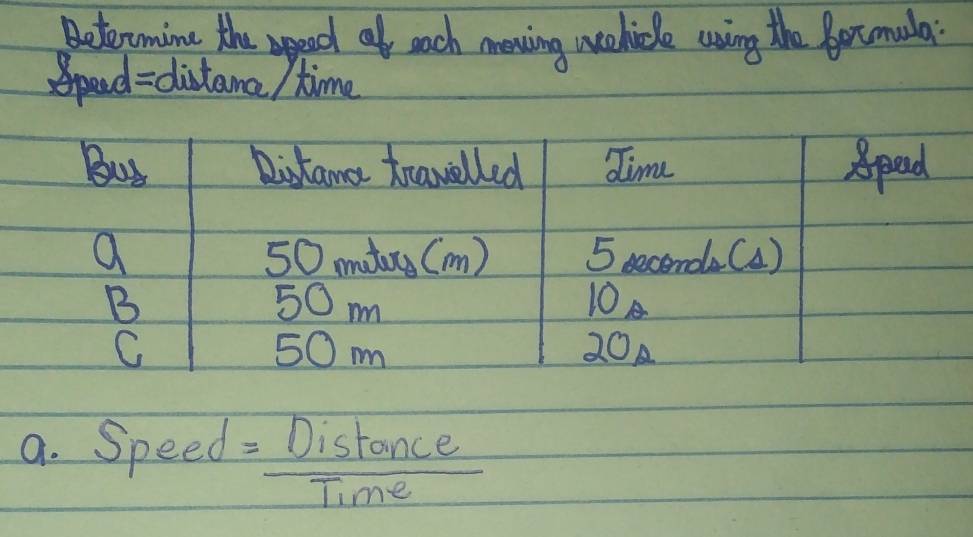 Determine the speed of each moving vechicle using the formula:
Speed=distance/time
Bus Distance travelled Time Speed
a 50 meters(m) 5 seconds(s)
B 50 m 10s
C 50 m 20s
a. Speed = Distance
Time